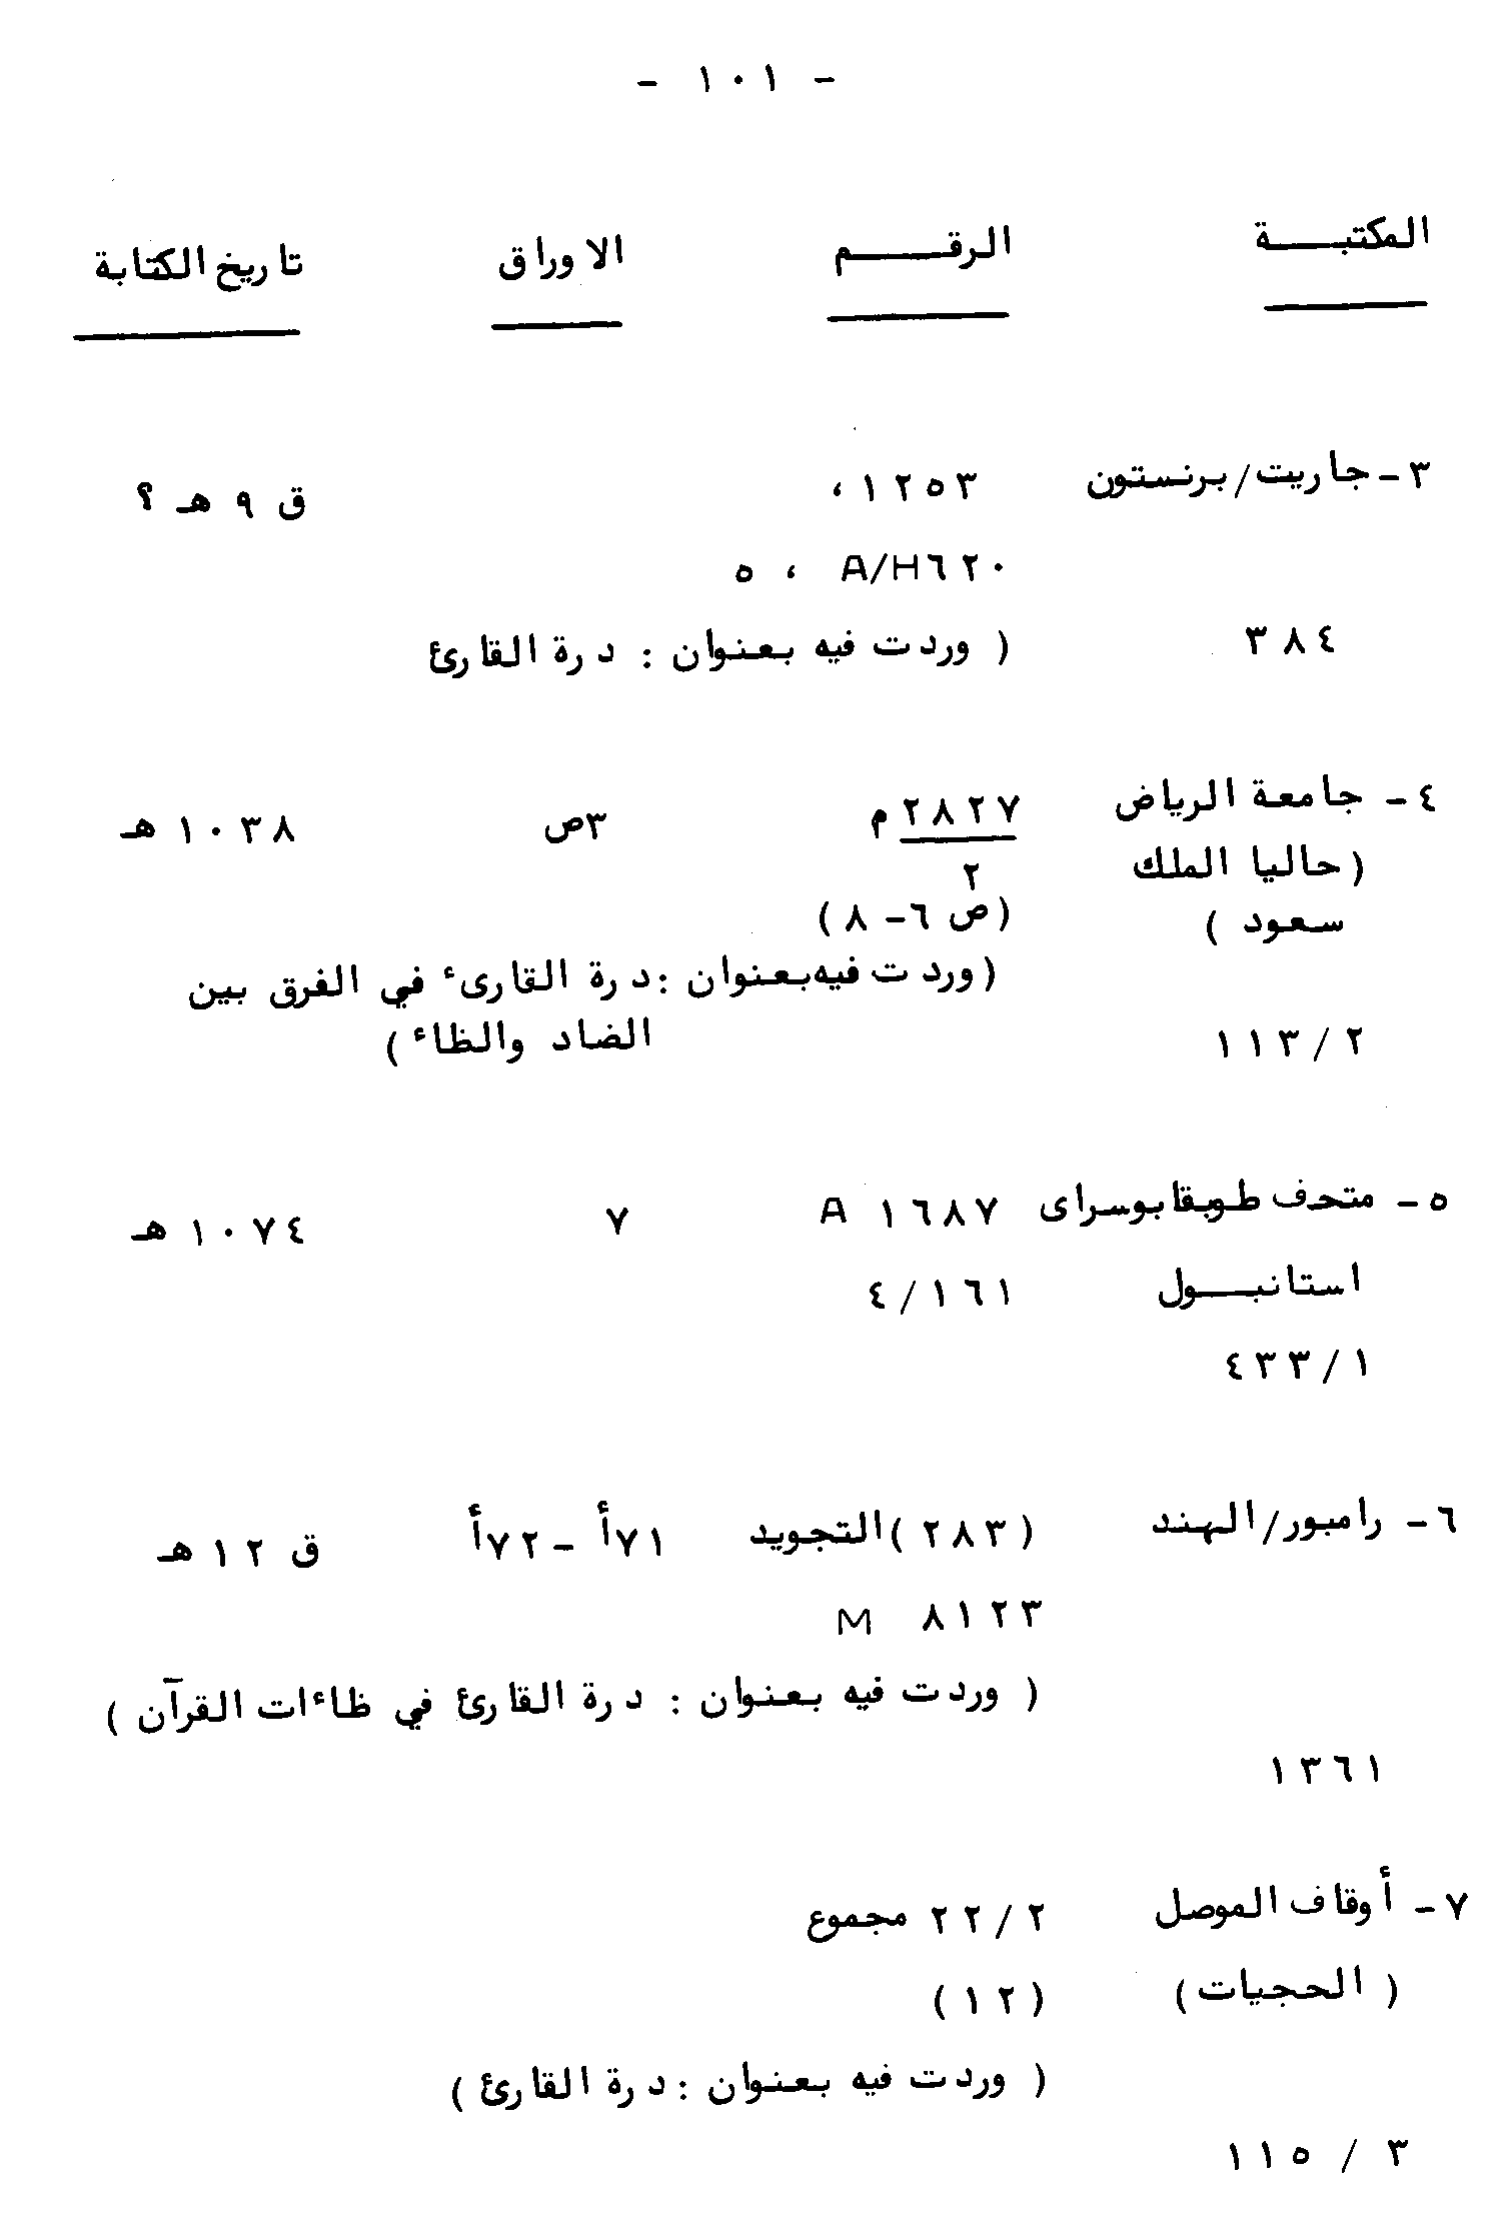 - ١٠١ -
المكتبة الرقم الاوراق تاريخ الكتابة
٣- جاريت/برنستون ١٢٥٣ ، ق ٩ هـ ؟
A/H٦٢٠ ، ٥
٣٨٤ ( وردت فيه بعنوان : درة القارئ
٤- جامعة الرياض ٢٨٢٧ م ٣ص ١٠٣٨ هـ
( حاليا الملك ٢
سعود ) (ص ٦- ٨)
(وردت فيه بعنوان : درة القارىء في الفرق بين
١١٣/٢ الضاد والظاء )
٥- متحف طوبقابوسراى A ١٦٨٧ ٧ ١٠٧٤ هـ
استانبول ٤/١٦١
٤٣٣/١
٦- رامبور/الهند (٢٨٣) التجويد ٧١أ - ٧٢أ ق ١٢ هـ
M ٨١٢٣
( وردت فيه بعنوان : درة القارئ في ظاءات القرآن )
١٣٦١
٧- أوقاف الموصل ٢٢/٢ مجموع
( الحجيات ) (١٢)
( وردت فيه بعنوان : درة القارئ )
١١٥ / ٣